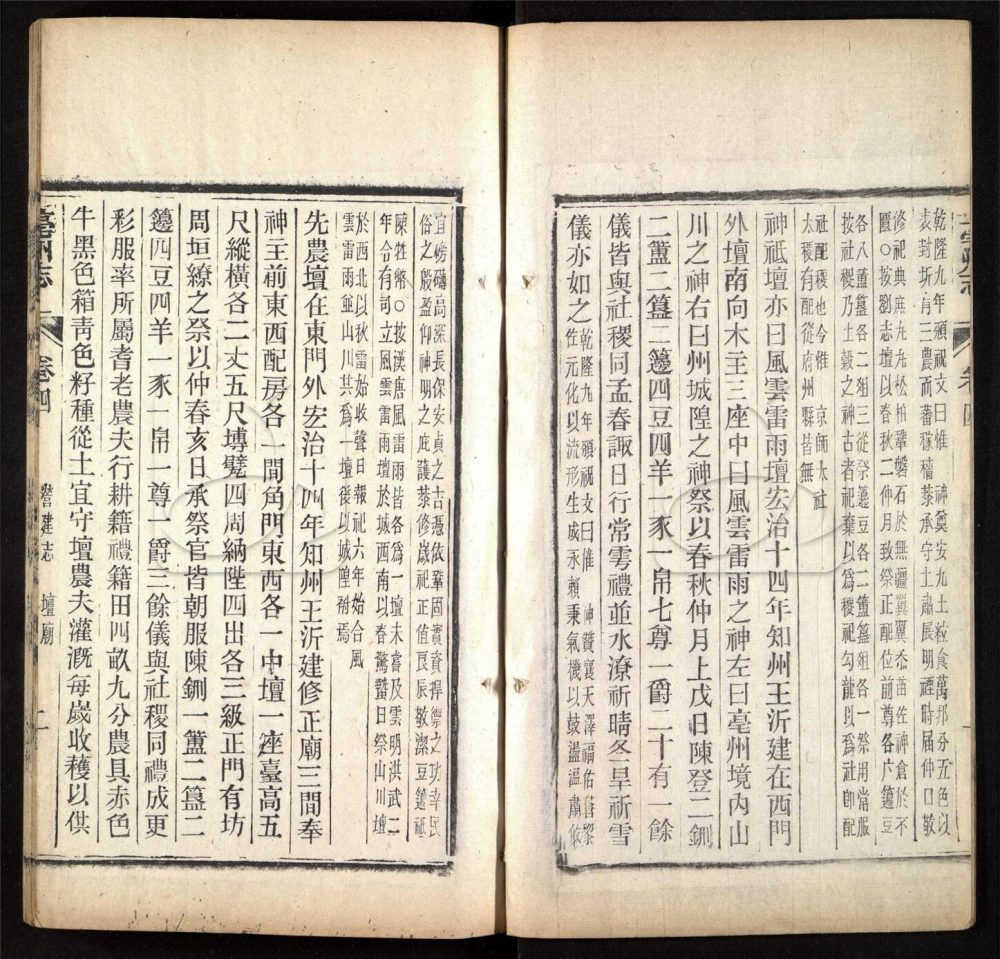 乾隆九年頒祝文曰惟　神奠安九土粒食萬邦分五色以
表封圻育三農而蕃稼穡恭承守土肅展明禋時屆仲　敬
修祀典庶丸丸松柏鞏磐石於無疆翼翼黍苗佐神倉於不
匱〇按劉志壇以春秋二仲月致祭正配位前尊各六籩豆
各八簠簋各二俎三從祭籩豆各二簠簋俎各一祭用常服
按社稷乃土穀之神古者祀棄以爲稷祀勾龍以爲社即配
社配稷也今惟　京師太社
太稷有配從府州縣皆無
神祗壇亦曰風雲雷雨壇宏治十四年知州王沂建在西門
外壇南向木主三座中曰風雲雷雨之神左曰亳州境內山
川之神右曰州城隍之神祭以春秋仲月上戊日陳登二鉶
二簠二簋二籩四豆四羊一豕一帛七尊一爵二十有一餘
儀皆與社稷同孟春諏日行常雩禮並水潦祈晴冬旱祈雪
儀亦如之
乾隆九年頒祝文曰惟　神贊襄天澤福佑蒼黎
佐元化以流形生成永賴秉氣機以鼓盪溫肅攸
宜磅礴高深長保安貞之吉憑依鞏固實資捍禦之功幸民
俗之殷盈仰神明之庇護恭修歲祀正值良辰敬潔豆籩祗
陳牲幣〇按漢唐風雷雨皆各爲一壇未嘗及雲明洪武二
年令有司立風雲雷雨壇於城西南以春驚蟄日祭山川壇
於西北以秋雷始收聲日報祀六年始合風
雲雷雨並山川共爲一壇後以城隍祔焉
先農壇在東門外宏治十四年知州王沂建修正廟三間奉
神主前東西配房各一間角門東西各一中壇一座臺高五
尺縱橫各二丈五尺塼甃四周納陛四出各三級正門有坊
周垣繚之祭以仲春亥日承祭官皆朝服陳鉶一簠二簋二
籩四豆四羊一豕一帛一尊一爵三餘儀與社稷同禮成更
彩服率所屬耆老農夫行耕耤禮籍田四畝九分農具赤色
牛黑色箱靑色籽種從土宜守壇農夫灌溉每歲收穫以供
亳州志　卷四　營建志　壇廟　二